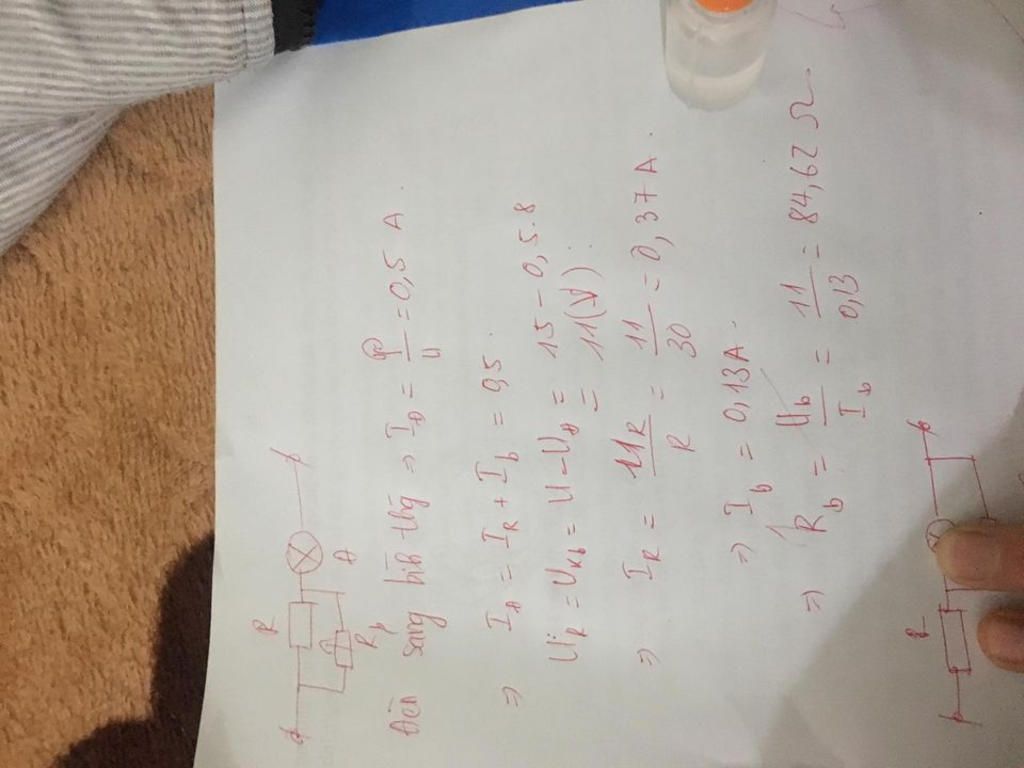 R
Rb
Đ
Đèn sáng bình thg => IĐ = P/U = 0,5 A.
=> IĐ = IR + Ib = 0,5
UR = URb = U - UĐ = 15 - 0,5.8
= 11(V)
=> IR = UR/R = 11/30 = 0,37 A.
=> Ib = 0,13A.
=> Rb = Ub/Ib = 11/0,13 = 84,62 Ω
R